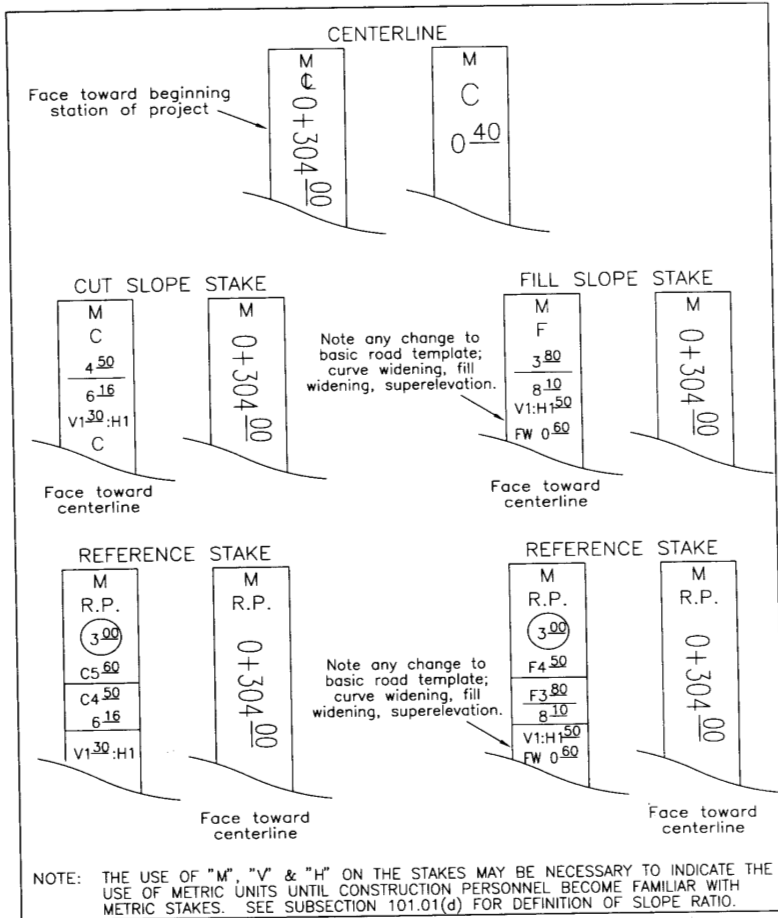 CENTERLINE
Face toward beginning
station of project
M
℄ 0+304 00
M
C
0 40
CUT SLOPE STAKE
M
C
4 50
6 16
V1 30 :H1
C
M
0+304 00
Face toward
centerline
FILL SLOPE STAKE
Note any change to
basic road template;
curve widening, fill
widening, superelevation.
M
F
3 80
8 10
V1:H1 50
FW 0 60
M
0+304 00
Face toward
centerline
REFERENCE STAKE
M
R.P.
3 00
C5 60
C4 50
6 16
V1 30 :H1
M
R.P.
0+304 00
Face toward
centerline
REFERENCE STAKE
Note any change to
basic road template;
curve widening, fill
widening, superelevation.
M
R.P.
3 00
F4 50
F3 80
8 10
V1:H1 50
FW 0 60
M
R.P.
0+304 00
Face toward
centerline
NOTE: THE USE OF "M", "V" & "H" ON THE STAKES MAY BE NECESSARY TO INDICATE THE
USE OF METRIC UNITS UNTIL CONSTRUCTION PERSONNEL BECOME FAMILIAR WITH
METRIC STAKES. SEE SUBSECTION 101.01(d) FOR DEFINITION OF SLOPE RATIO.